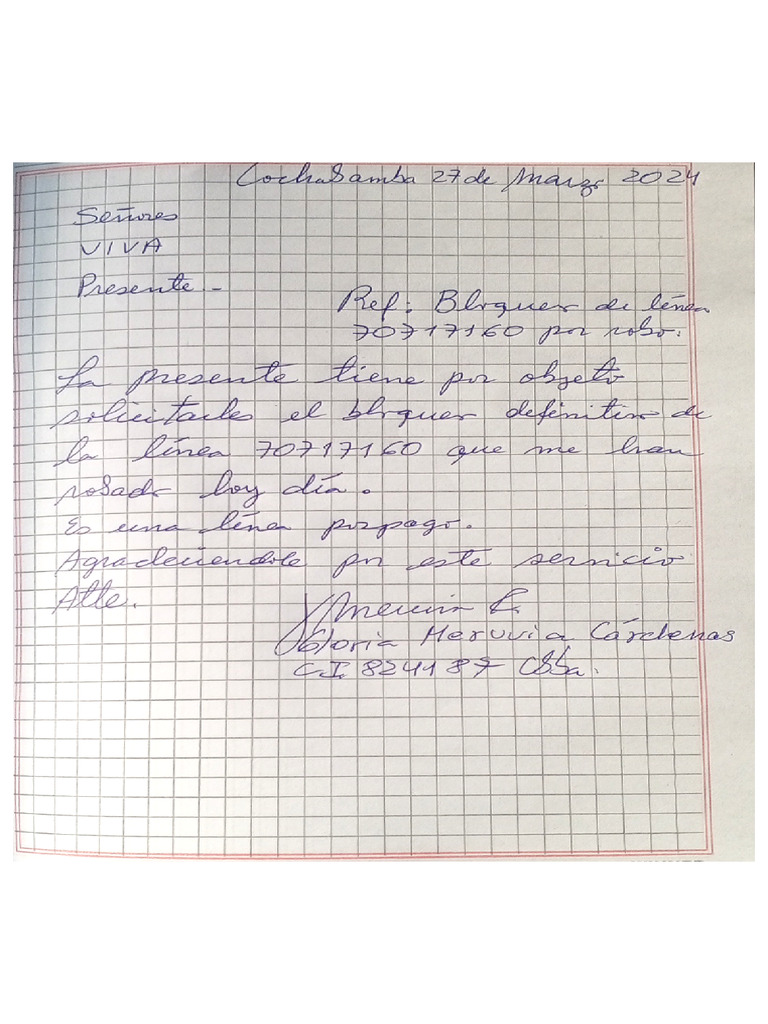 Cochabamba 27 de Marzo 2024
Señores
VIVA
Presente.-
Ref: Bloqueo de línea
70717160 por robo.
La presente tiene por objeto
solicitarles el bloqueo definitivo de
la línea 70717160 que me han
robado hoy día.
Es una línea porpago.
Agradeciendole por este servicio
Atte.
Gloria Meruvia Cárdenas
C.I. 824187 Cbba.